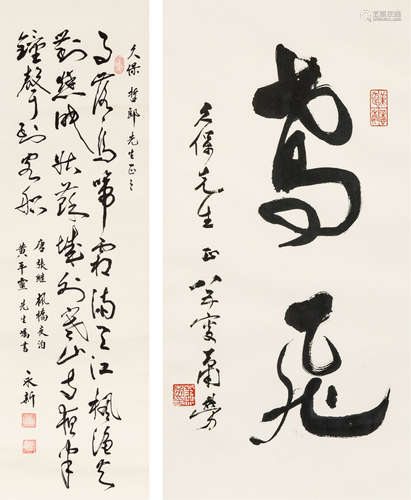 久保 哲郎 先生正之
月落烏啼霜滿天江楓漁火
對愁眠姑蘇城外寒山寺夜半
鐘聲到客船
唐張繼楓橋夜泊
先生囑書
永新
鳶飛
久保先生正
叟蕭勞